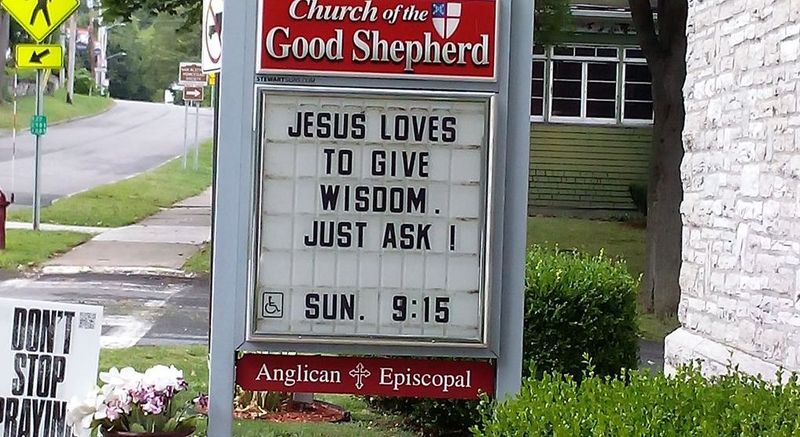 Church of the
Good Shepherd
STEWARTSIGNS.COM
JESUS LOVES
TO GIVE
WISDOM.
JUST ASK!
SUN. 9:15
Anglican Episcopal
DON'T
STOP
PRAYIN